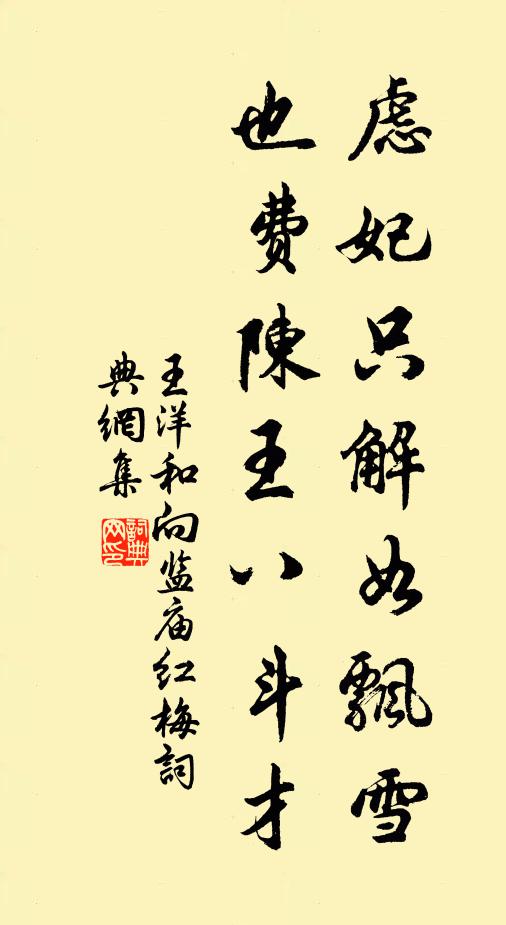 虙妃只解如飄雪
也費陳王八斗才
王洋和向监庙红梅詞
典網集
詞典
网印